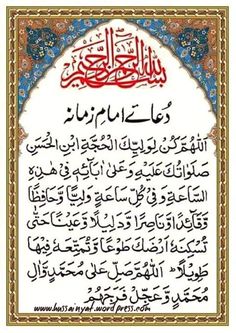 بسم الله الرحمن الرحيم
دُعائے امامِ زمانہ
اَللّٰهُمَّ كُنْ لِوَلِيِّكَ الْحُجَّةِ ابْنِ الْحَسَنِ
صَلَوَاتُكَ عَلَيْهِ وَعَلىٰ اٰبَآئِهٖ فِيْ هٰذِهِ
السَّاعَةِ وَفِيْ كُلِّ سَاعَةٍ وَلِيًّا وَّحَافِظًا
وَّقَآئِدًا وَّنَاصِرًا وَّدَلِيْلًا وَّعَيْنًا حَتّٰى
تُسْكِنَهٗ اَرْضَكَ طَوْعًا وَّتُمَتِّعَهٗ فِيْهَا
طَوِيْلًا ۔ اَللّٰهُمَّ صَلِّ عَلٰى مُحَمَّدٍ وَّاٰلِ
مُحَمَّدٍ وَّعَجِّلْ فَرَجَهُمْ
www.hussainyat.wordpress.com